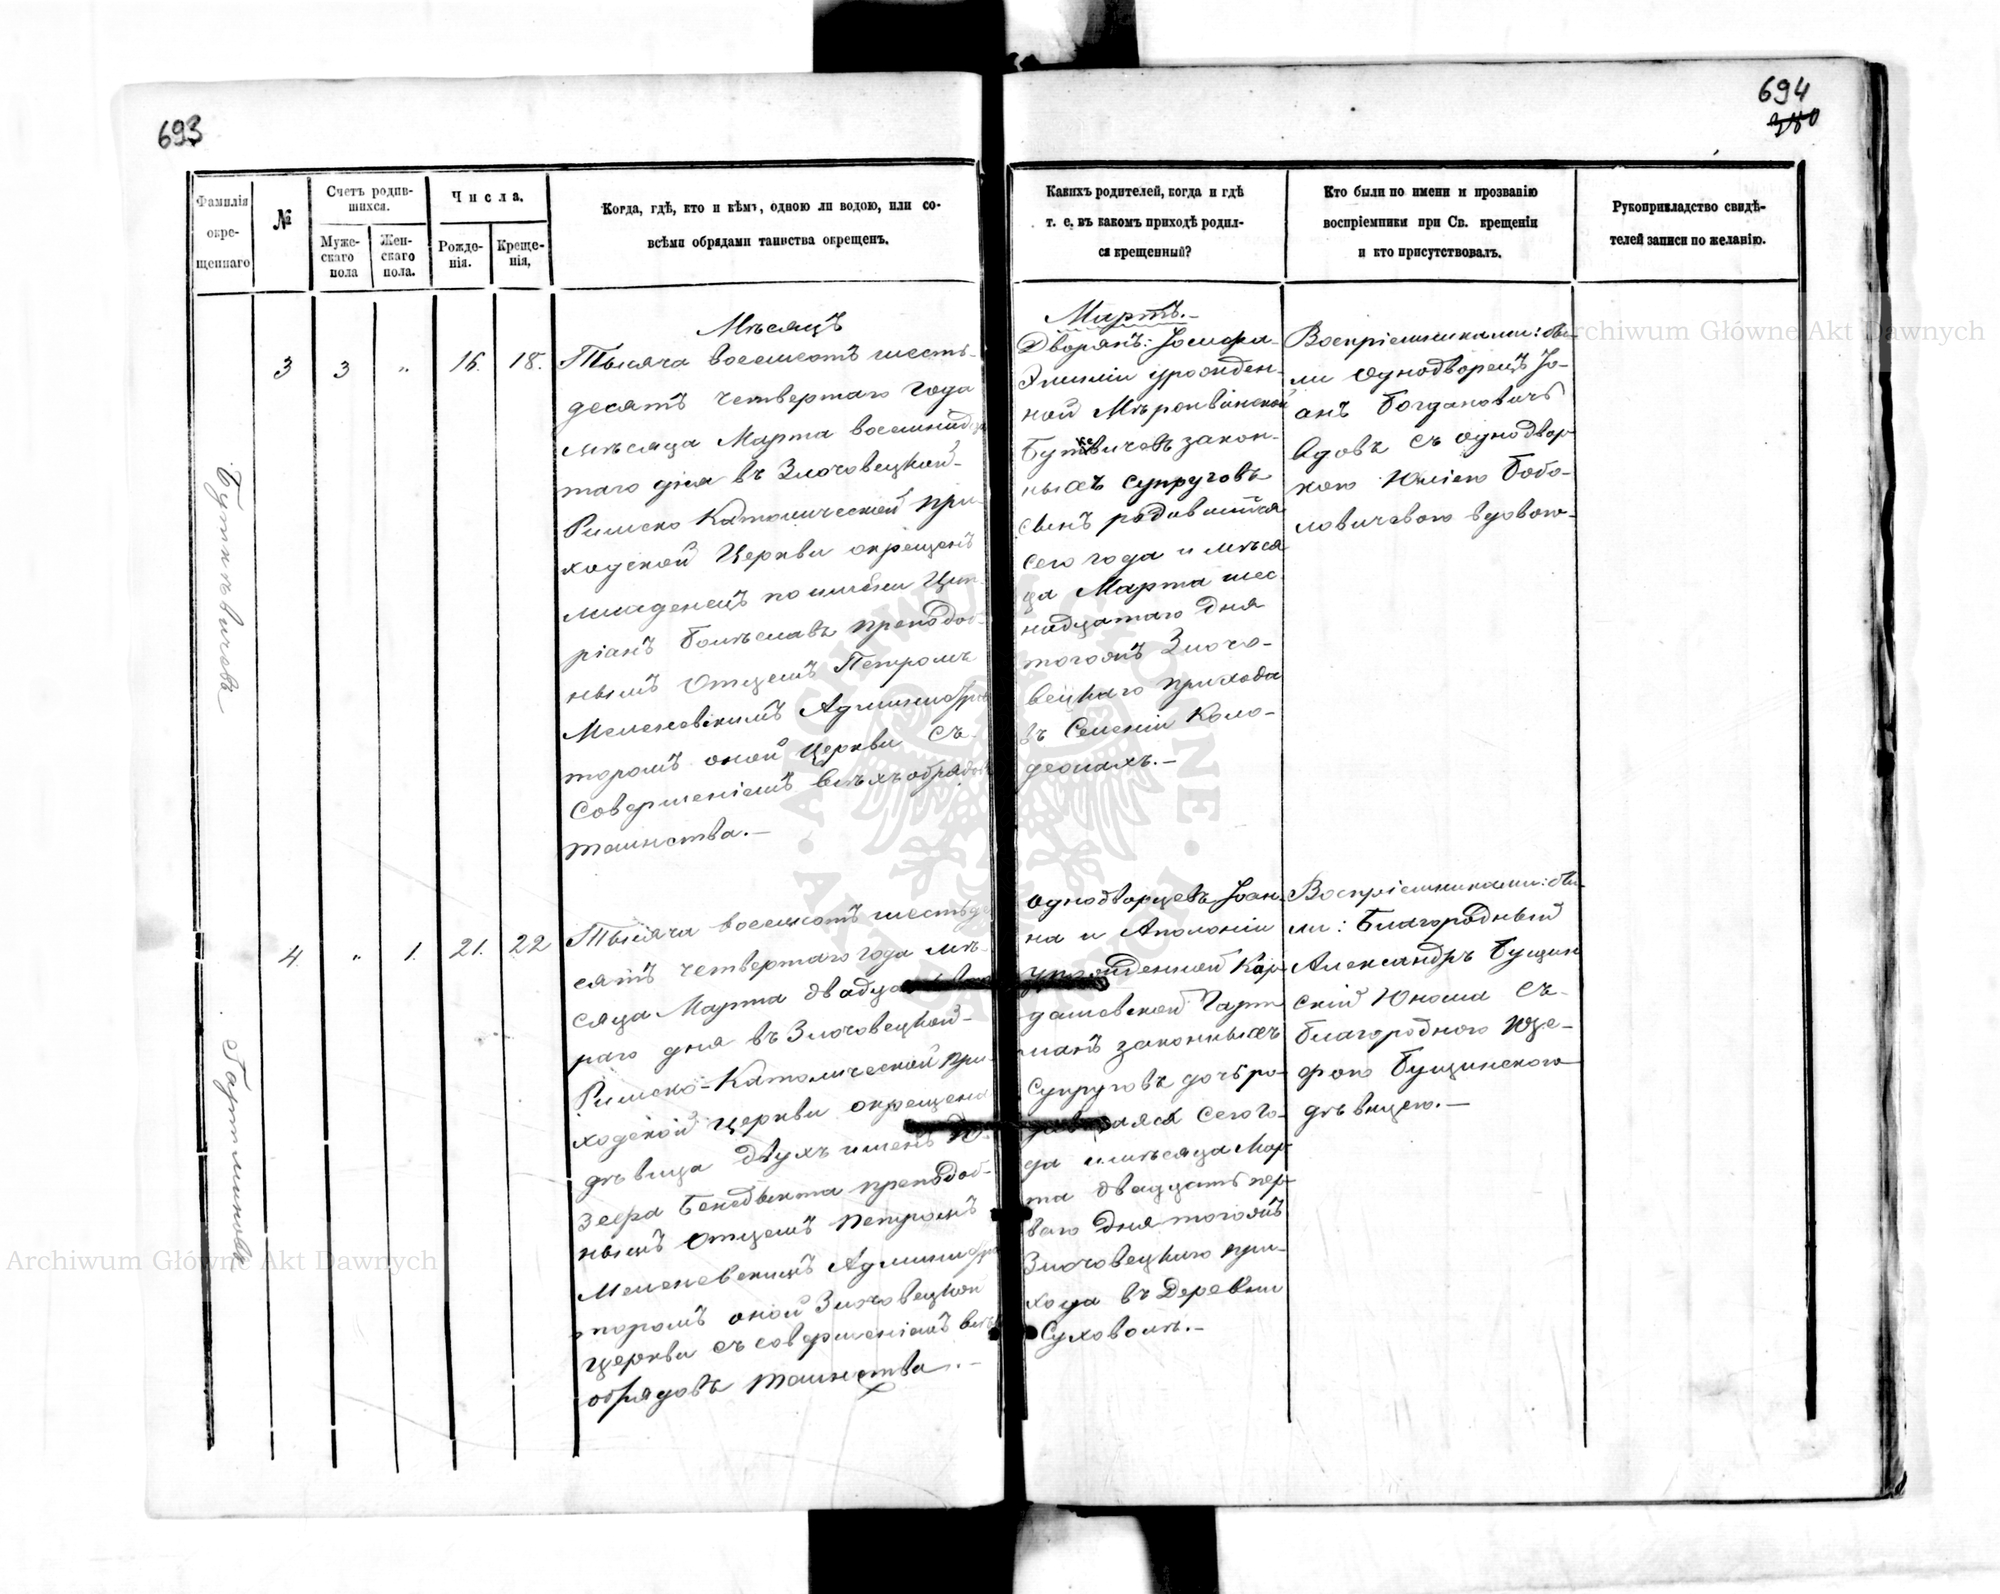 693
694
380
Фамилія
окре-
щеннаго
№
Счетъ родив-
шихся.
Муже-
скаго
пола
Жен-
скаго
пола.
Числа.
Рожде-
нія.
Креще-
нія,
Когда, гдѣ, кто и кѣмъ, одною ли водою, или со-
всѣми обрядами таинства окрещенъ.
Какихъ родителей, когда и гдѣ
т. е. въ какомъ приходѣ родил-
ся крещенный?
Кто были по имени и прозванію
воспріемники при Св. крещеніи
и кто присутствовалъ.
Рукоприкладство свидѣ-
телей записи по желанію.
Буткѣвичовъ
3
3
„
16.
18.
Мѣсяцъ
Тысяча восемсотъ шесть-
десятъ четвертаго года
мѣсяца Марта восемнадца
таго дня въ Злочовецкой-
Римско Католической при-
ходской Церкви окрещенъ
младенецъ по имени Цип-
ріанъ Болѣславъ преподоб-
нымъ Отцемъ Петромъ
Администра
торомъ оной Церкви съ-
совершеніемъ всѣхъ обрядовъ
таинства.—
Мартъ.—
Дворянъ: Іосифа-
Эмиліи урожден-
ной
закон-
ныхъ супруговъ
сынъ родившійся
сего года и мѣся
ца Марта шес
надцатаго дня
тогожъ Злочо-
вецкаго прихода
въ Селеніи Коло-
деонахъ.—
Воспріемниками: бы-
ли Однодворецъ Іо-
анъ Богдановичъ
вдовъ съ однодвор
кою Юліею Бобо-
ловичевою вдовою-
Гартмановъ
4.
„
1.
21.
22
Тысяча восемсотъ шестьде
сятъ четвертаго года мѣ-
сяца Марта двадцать вто
раго дня въ Злочовецкой-
Римско-Католической при-
ходской Церкви окрещена
дѣвица двухъ именъ Ю-
зефа Бенедыкта преподоб-
нымъ Отцемъ Петромъ
Администра
торомъ оной Злочовецкой
Церкви съ совершеніемъ всѣхъ
обрядовъ таинства.—
Однодворцевъ Іоан-
на и Аполоніи
урожденной Кар-
дашевской Гарт
манъ законныхъ
супруговъ дочь ро-
дившаяся сего го-
да и мѣсяца Мар-
та двадцать пер-
ваго дня тогожъ
Злочовецкаго при-
хода въ Деревни
Суховолѣ.—
Воспріемниками: бы-
ли: Благородный
Александръ Бущин
скій Юноша съ-
благородною Юзе-
фою Бущинскою
дѣвицею.—
Archiwum Główne Akt Dawnych
Archiwum Główne Akt Dawnych
ARCHIWUM GŁÓWNE AKT DAWNYCH